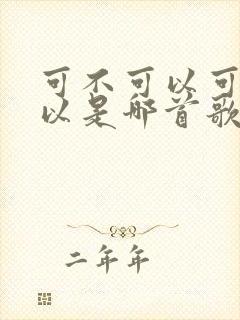 可不可以可
以是哪首歌
二年年